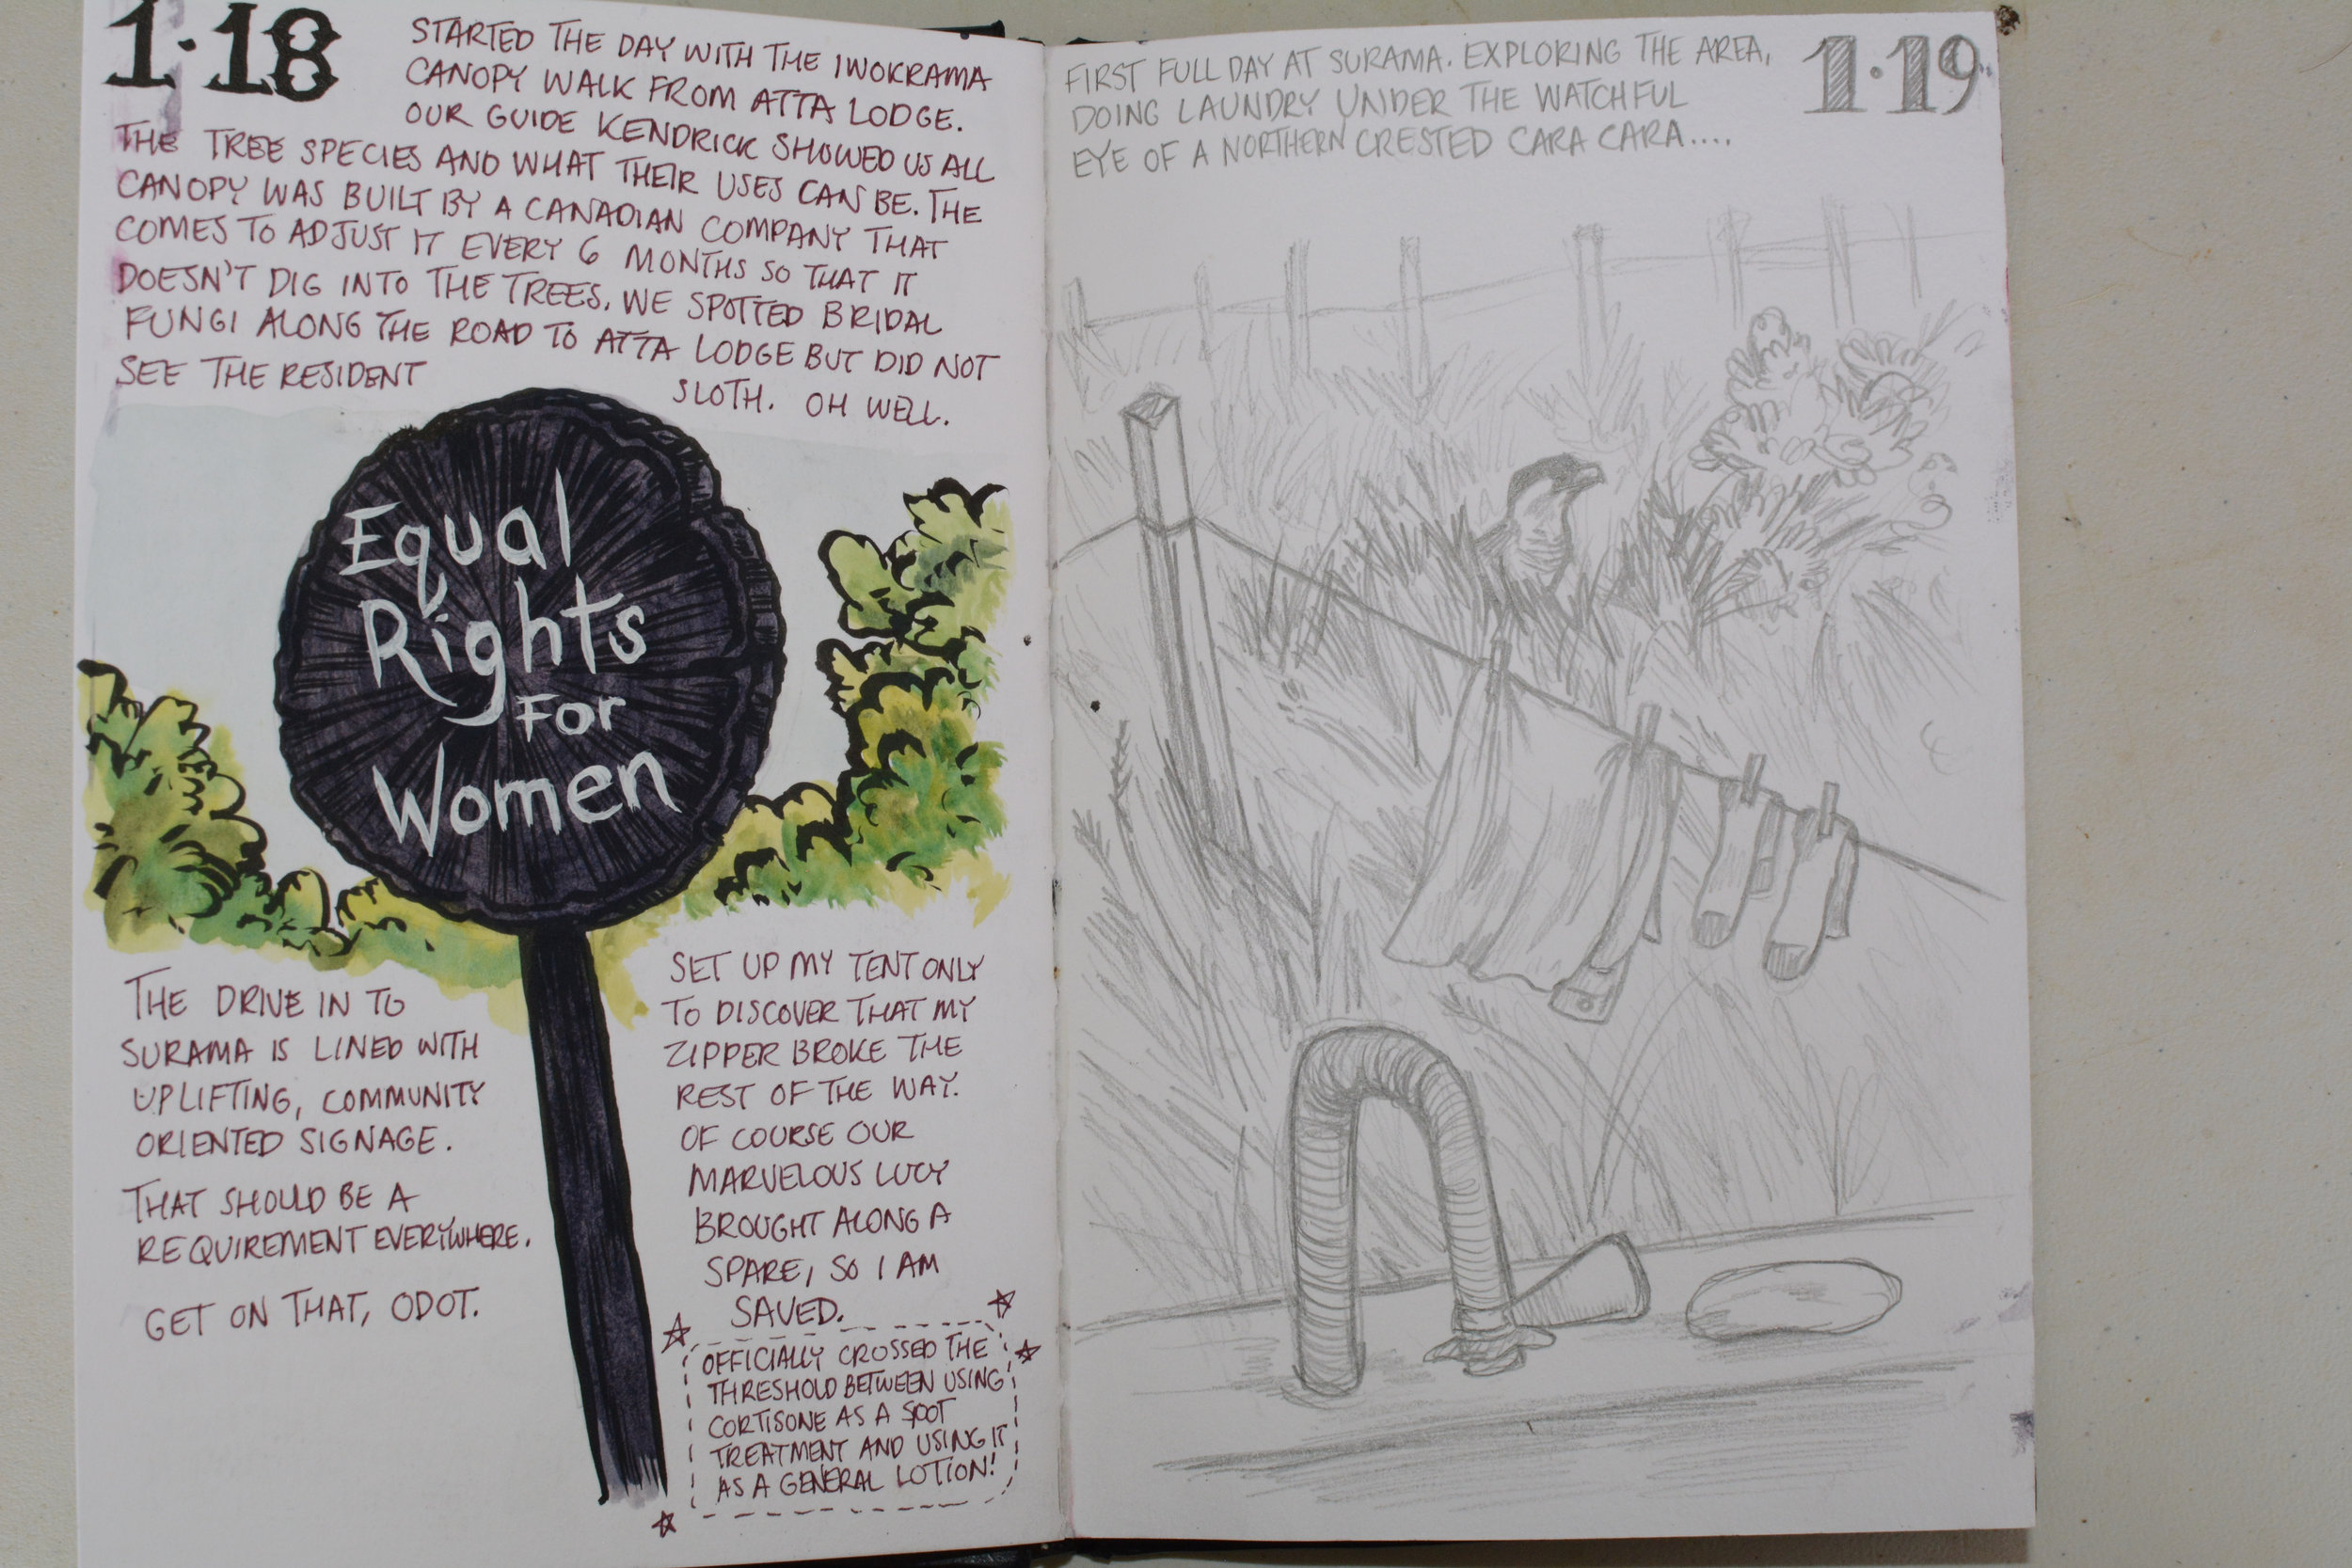 1·18
STARTED THE DAY WITH THE IWOKRAMA
CANOPY WALK FROM ATTA LODGE.
OUR GUIDE KENDRICK SHOWED US ALL
THE TREE SPECIES AND WHAT THEIR USES CAN BE. THE
CANOPY WAS BUILT BY A CANADIAN COMPANY THAT
COMES TO ADJUST IT EVERY 6 MONTHS SO THAT IT
DOESN'T DIG INTO THE TREES. WE SPOTTED BRIDAL
FUNGI ALONG THE ROAD TO ATTA LODGE BUT DID NOT
SEE THE RESIDENT SLOTH. OH WELL.
Equal
Rights
For
Women
THE DRIVE IN TO
SURAMA IS LINED WITH
UPLIFTING, COMMUNITY
ORIENTED SIGNAGE.
THAT SHOULD BE A
REQUIREMENT EVERYWHERE.
GET ON THAT, ODOT.
SET UP MY TENT ONLY
TO DISCOVER THAT MY
ZIPPER BROKE THE
REST OF THE WAY.
OF COURSE OUR
MARVELOUS LUCY
BROUGHT ALONG A
SPARE, SO I AM
SAVED.
OFFICIALLY CROSSED THE
THRESHOLD BETWEEN USING
CORTISONE AS A SPOT
TREATMENT AND USING IT
AS A GENERAL LOTION!
1·19
FIRST FULL DAY AT SURAMA. EXPLORING THE AREA,
DOING LAUNDRY UNDER THE WATCHFUL
EYE OF A NORTHERN CRESTED CARA CARA....